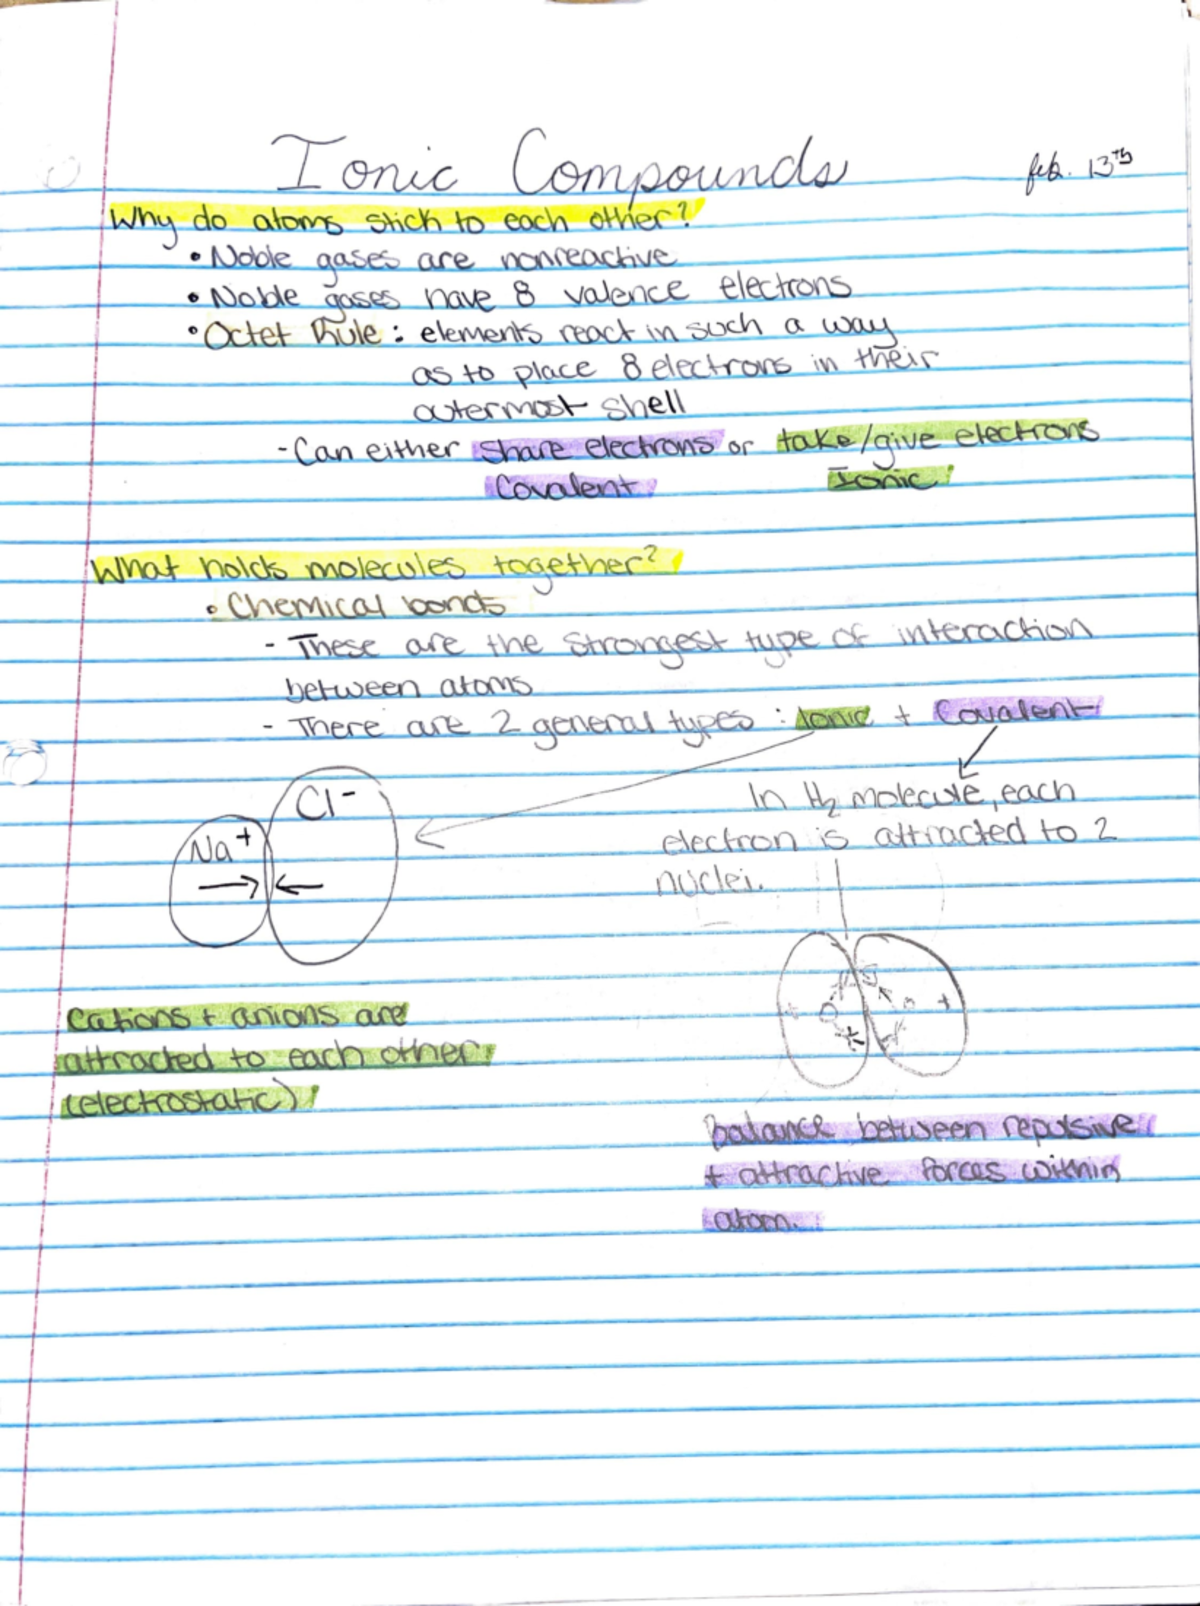 Ionic Compounds feb. 13th
Why do atoms stick to each other?
• Noble gases are nonreactive
• Noble gases have 8 valence electrons
• Octet Rule : elements react in such a way
as to place 8 electrons in their
outermost shell
- Can either share electrons or take/give electrons
Covalent Ionic
What holds molecules together?
• Chemical bonds
- These are the strongest type of interaction
between atoms
- There are 2 general types : Ionic + Covalent
In H₂ molecule, each
electron is attracted to 2
nuclei.
Cl⁻
Na⁺
+
Cations + anions are
attracted to each other
(electrostatic)
Balance between repulsive
+ attractive forces within
atom.